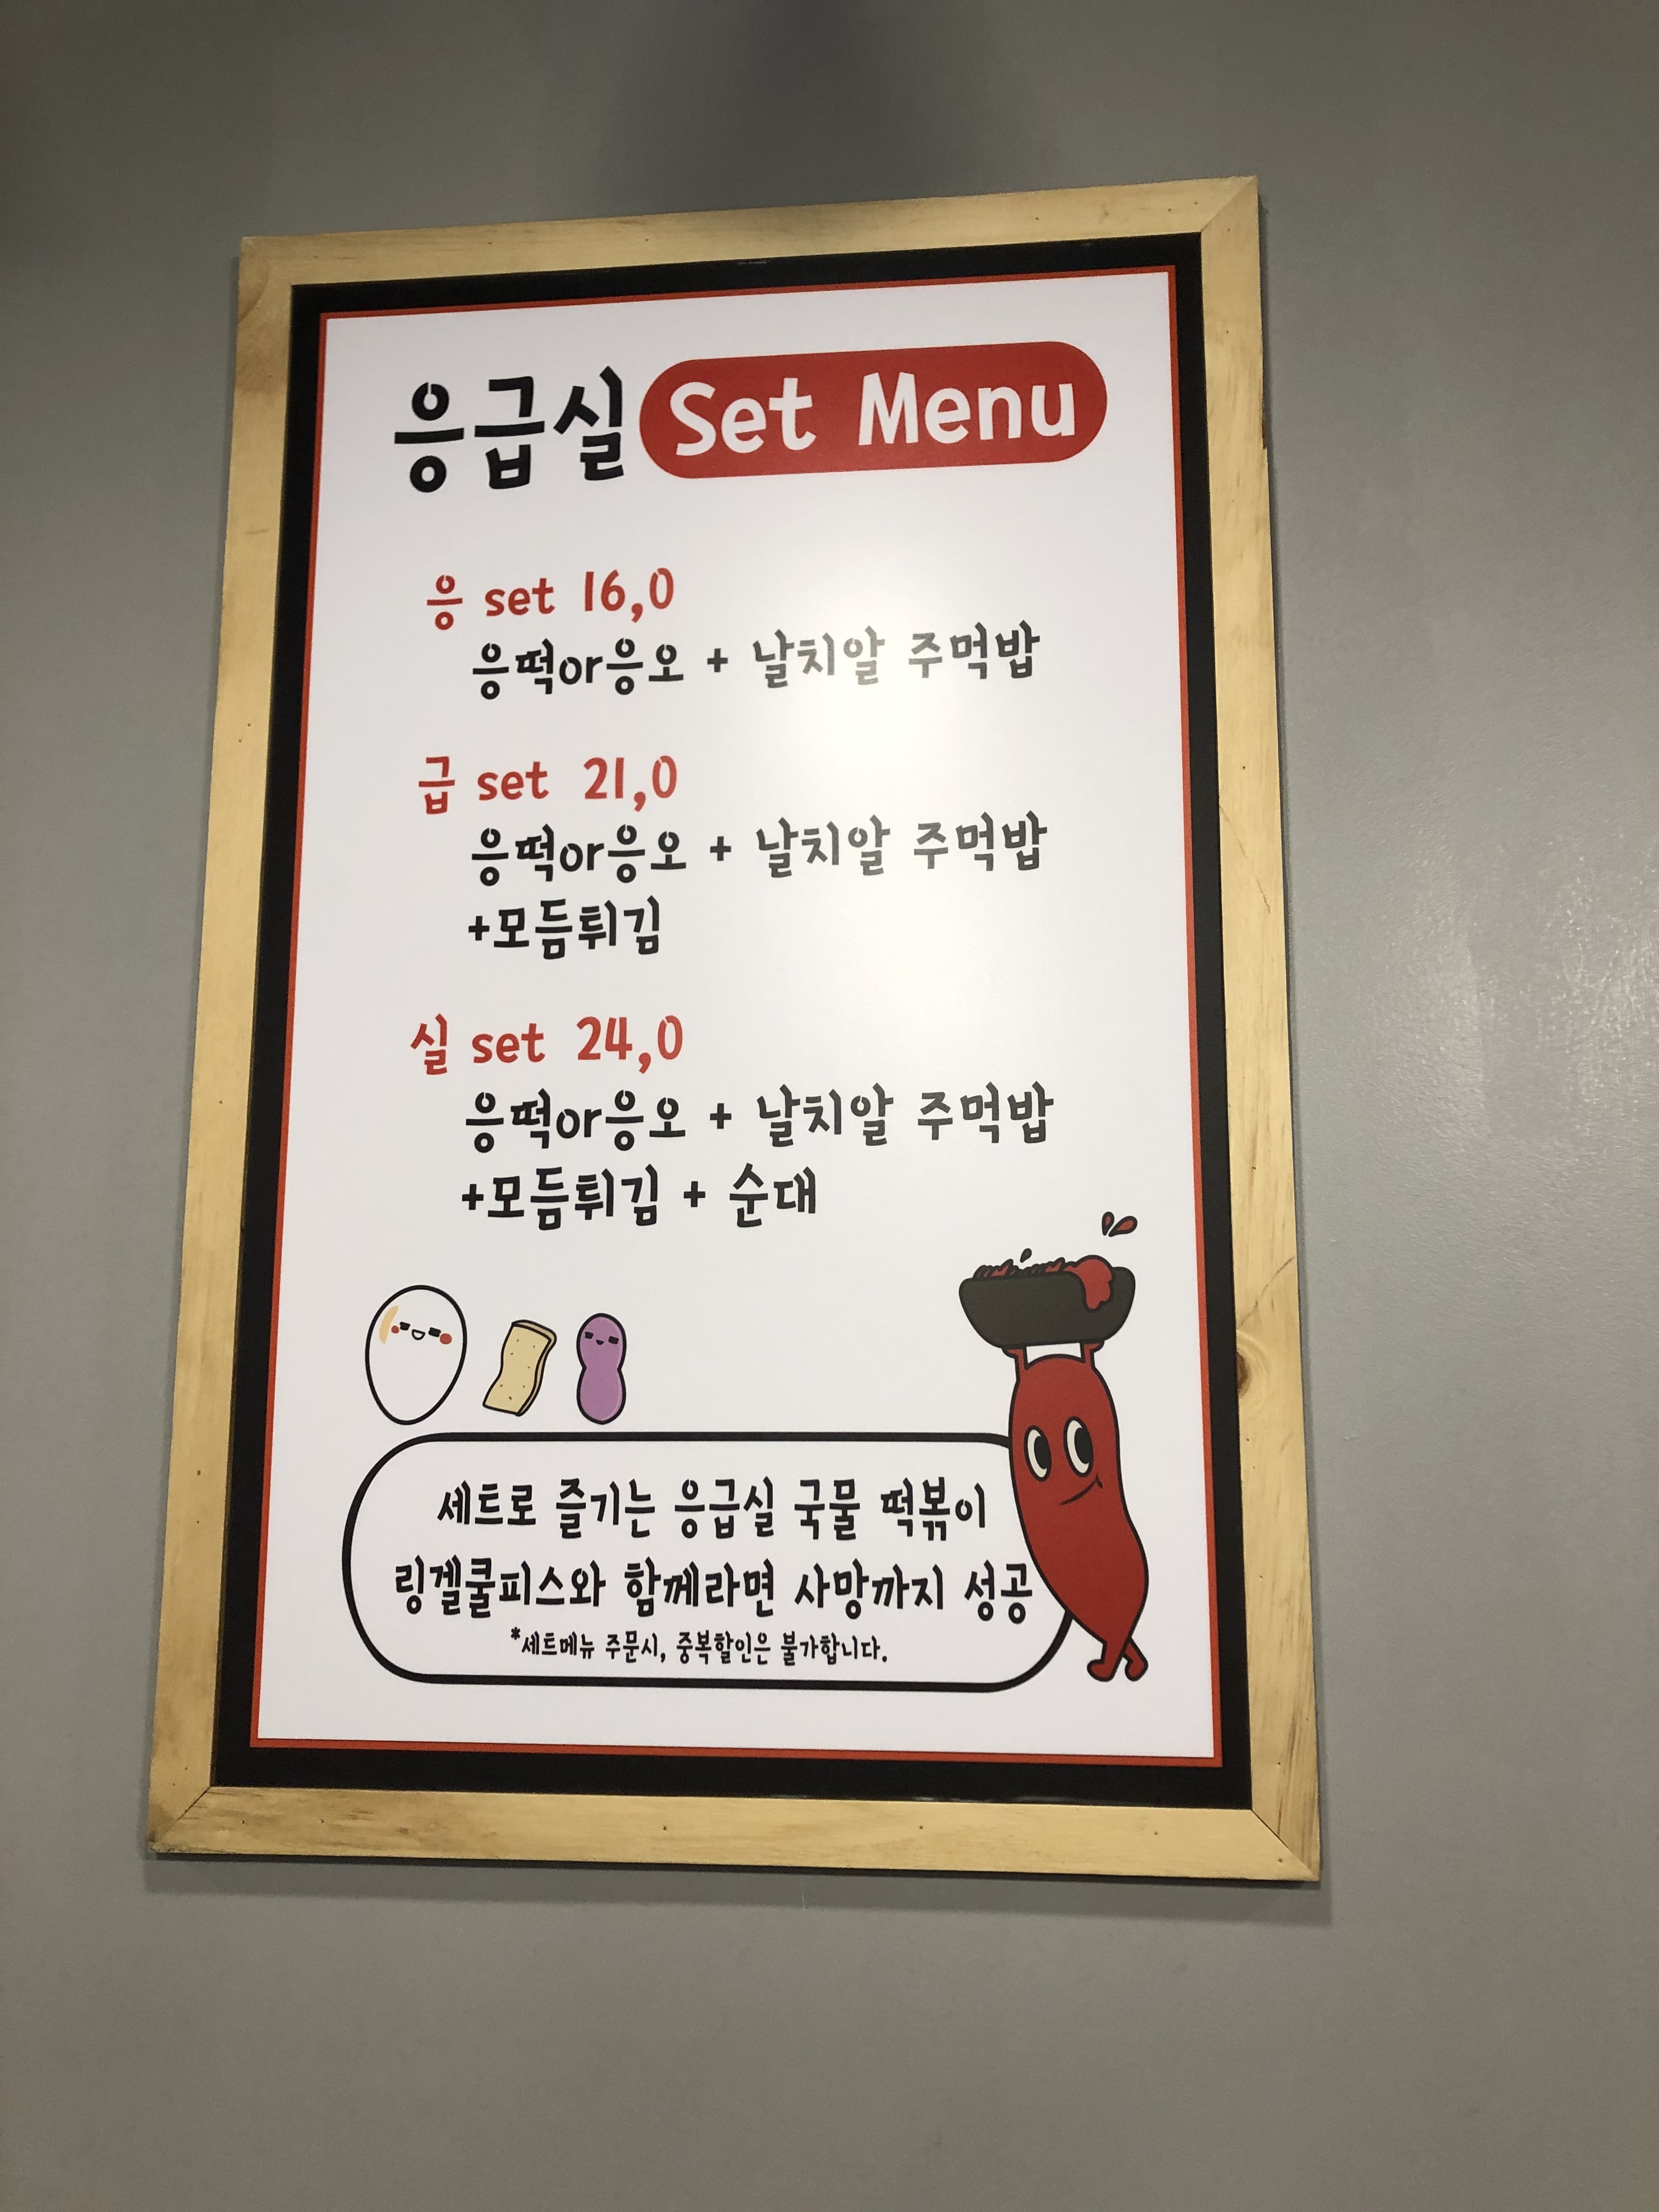 응급실 Set Menu
응 set 16,0
응떡or응오 + 날치알 주먹밥
급 set 21,0
응떡or응오 + 날치알 주먹밥
+모듬튀김
실 set 24,0
응떡or응오 + 날치알 주먹밥
+모듬튀김 + 순대
세트로 즐기는 응급실 국물 떡볶이
링겔쿨피스와 함께라면 사망까지 성공
*세트메뉴 주문시, 중복할인은 불가합니다.